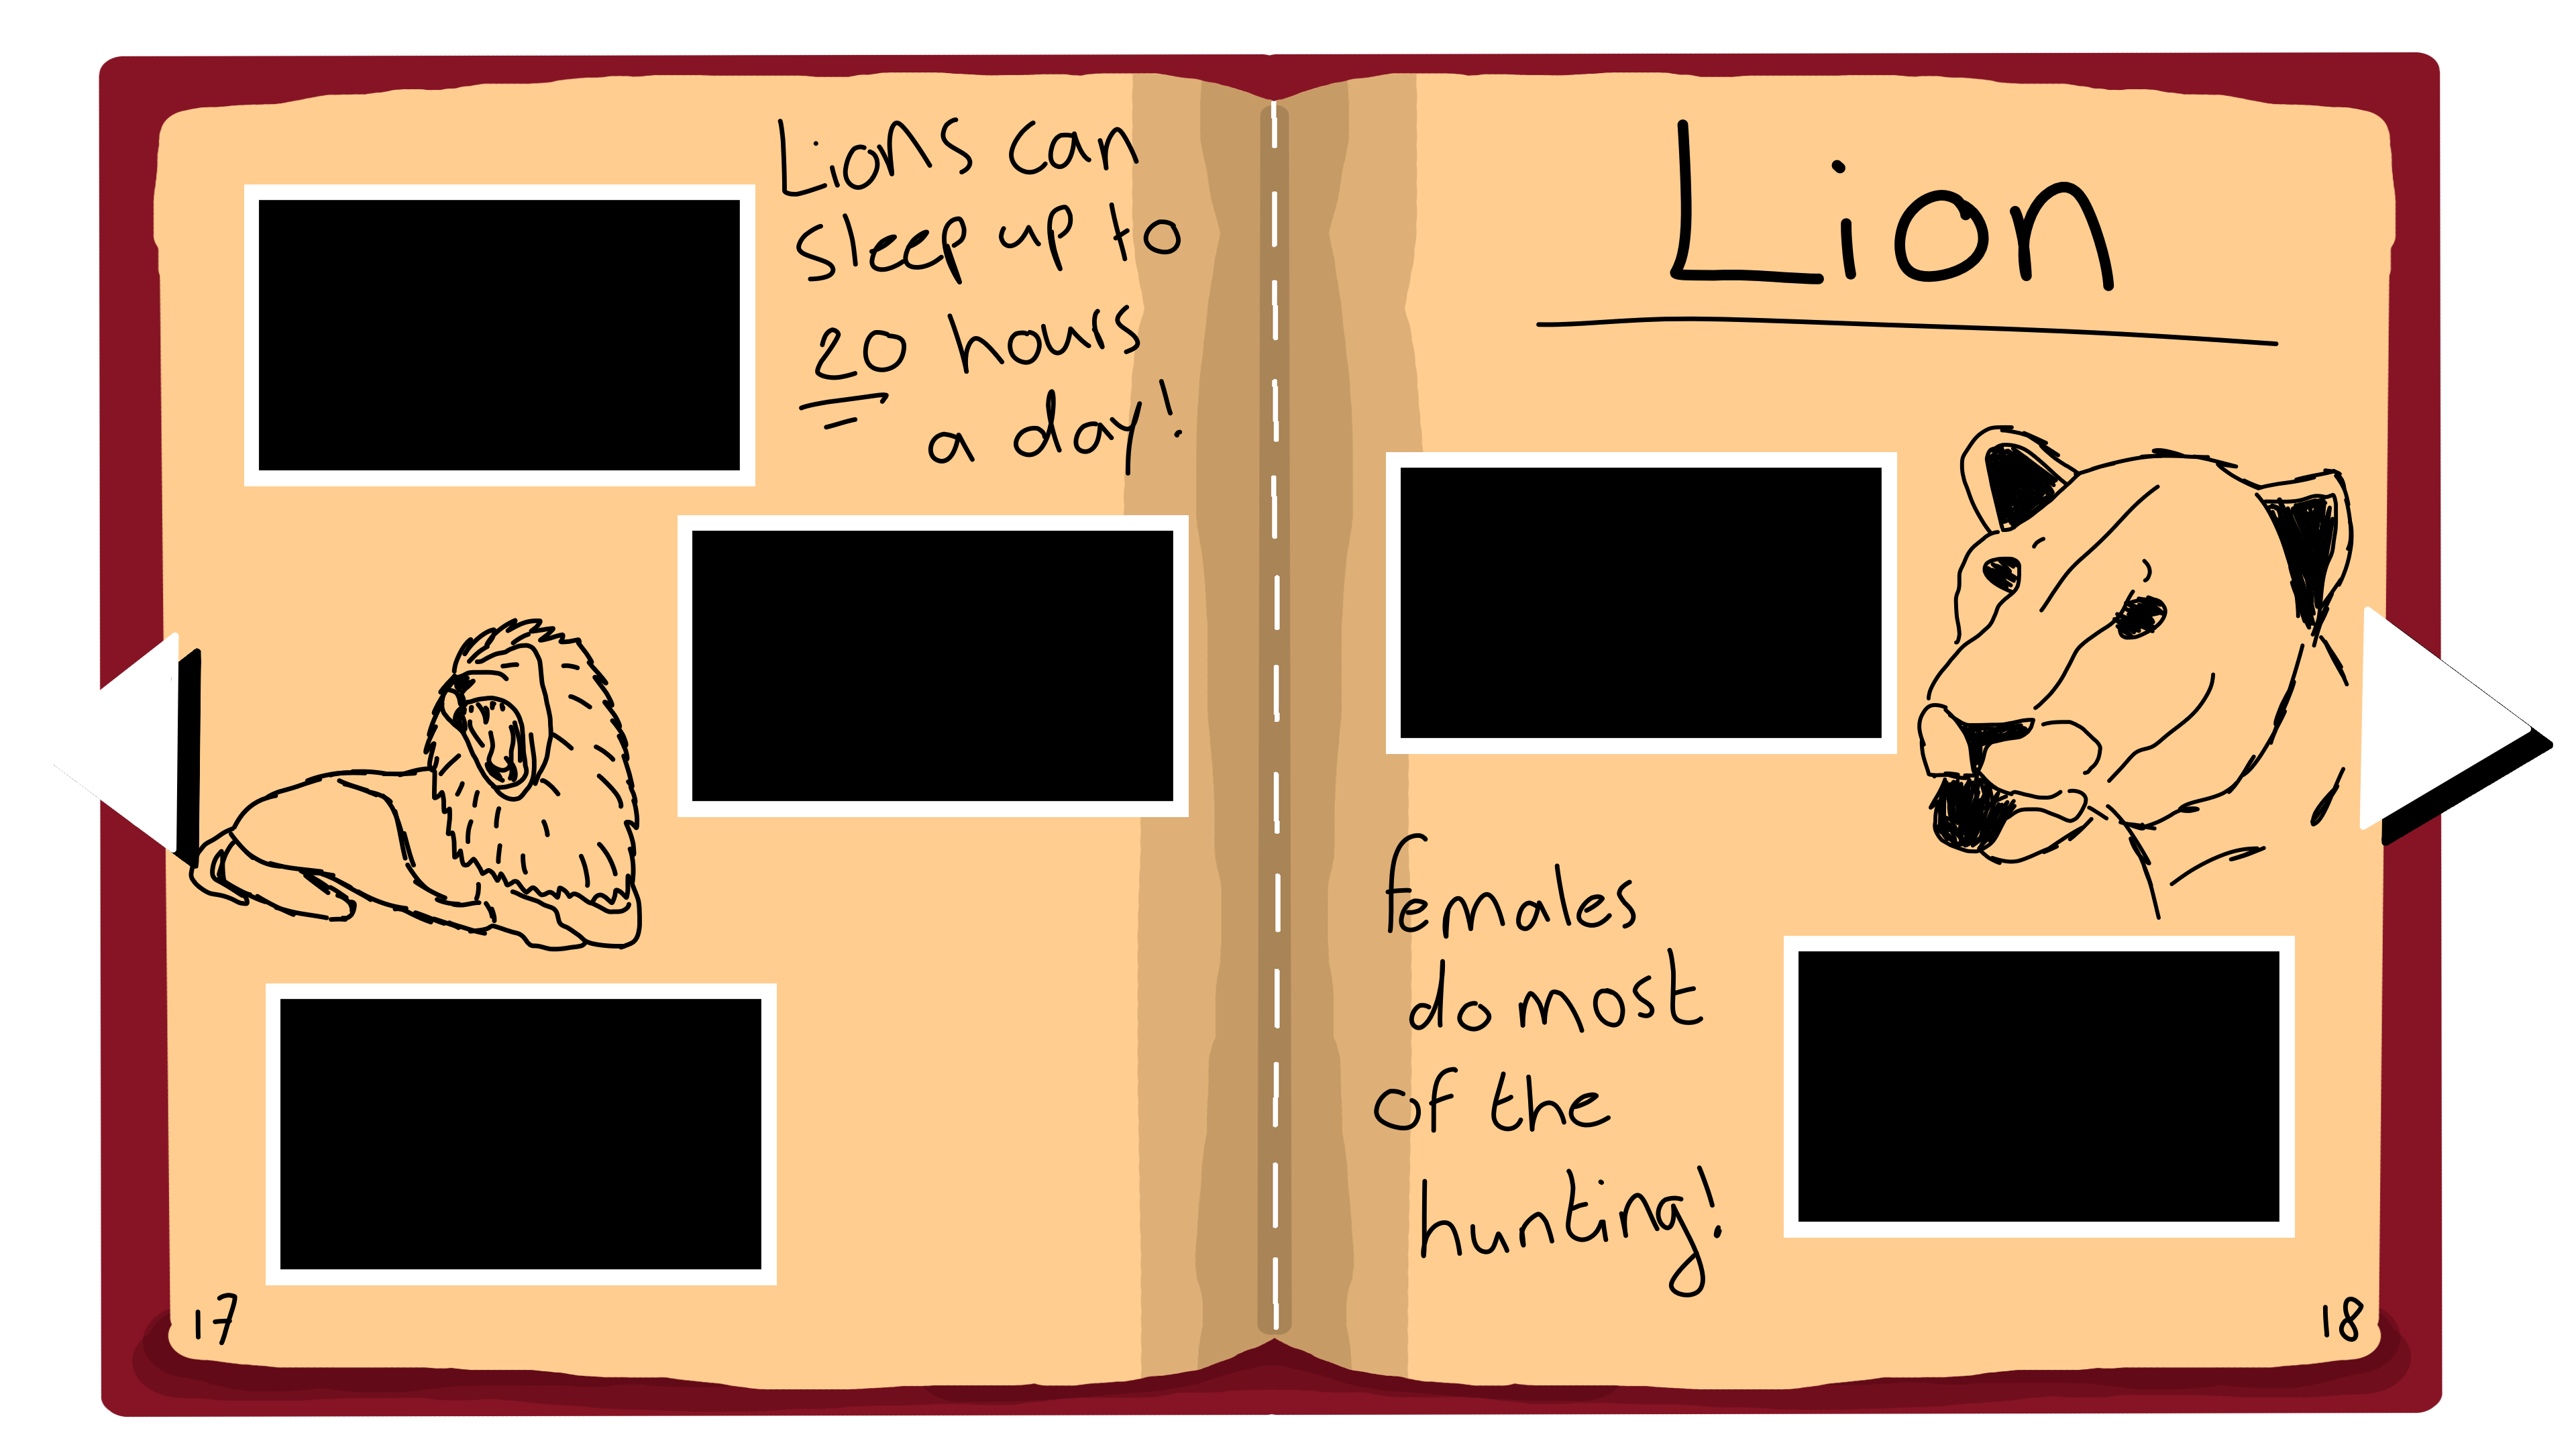 Lions can
sleep up to
20 hours
a day!
17
Lion
females
do most
of the
hunting!
18